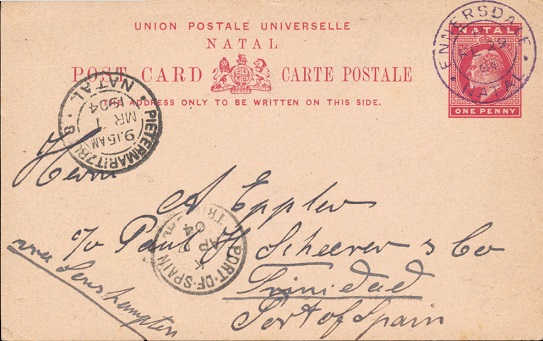 UNION POSTALE UNIVERSELLE
NATAL
POST CARD CARTE POSTALE
ADDRESS ONLY TO BE WRITTEN ON THIS SIDE.
NATAL
ONE PENNY
ENNERSDALE
NATAL
PIETERMARITZBURG NATAL
9.15 AM
MR 1
1904
PORT-OF-SPAIN
AP
04
Herrn
A. Eppler
c/o Paul H. Scheerer & Co
Trinidad
Port of Spain
via Southampton